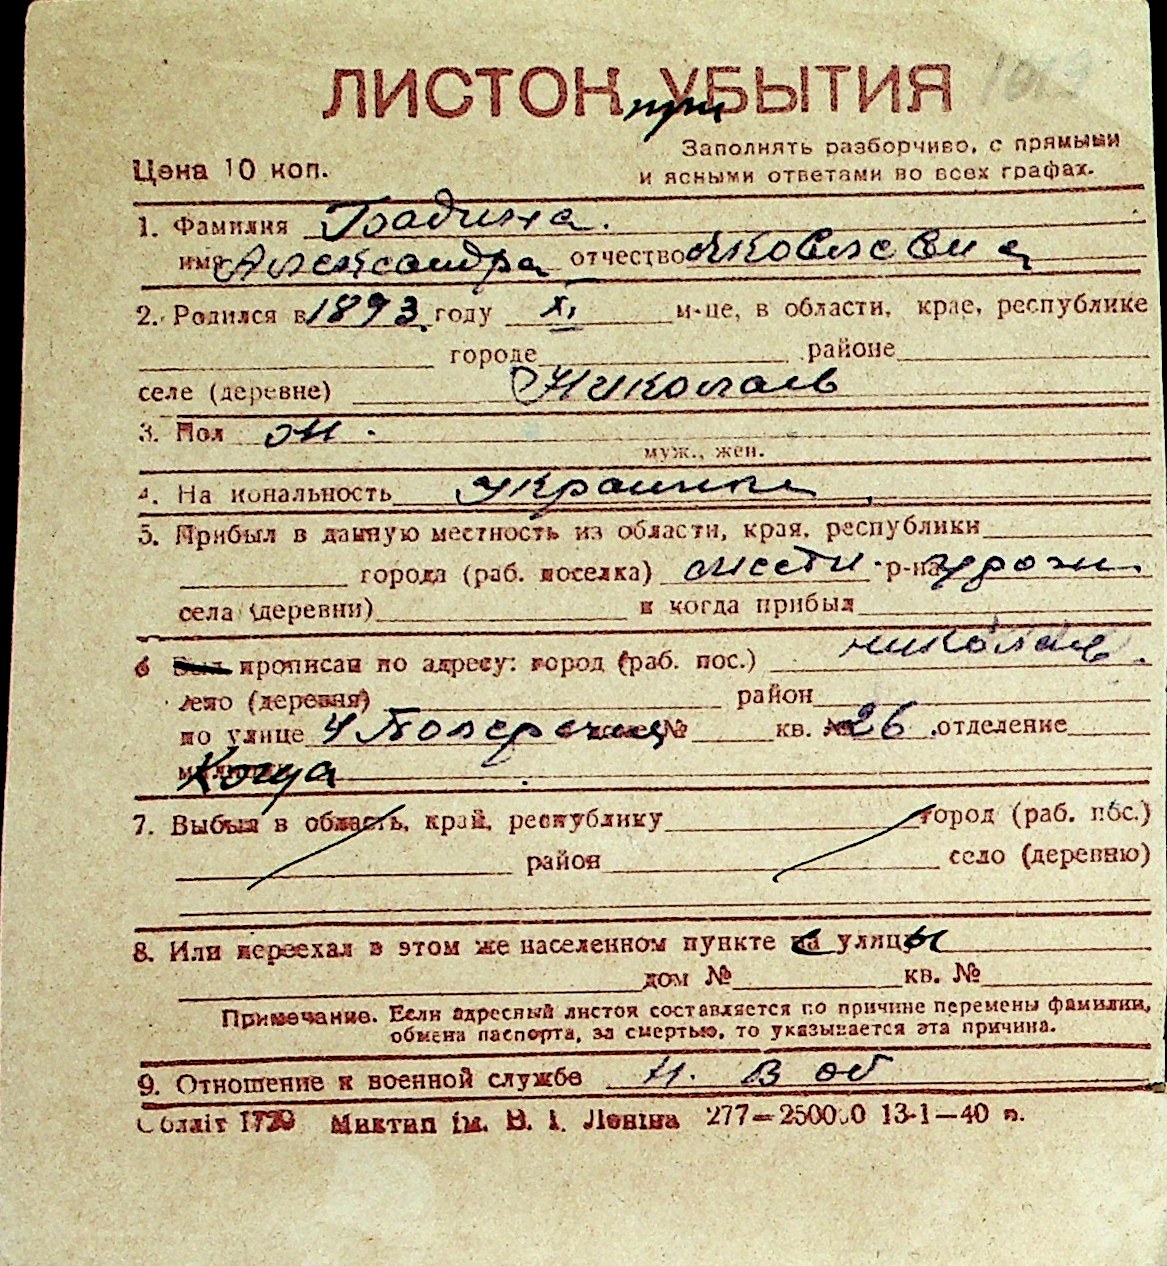 1012
ЛИСТОК УБЫТИЯ
при
Заполнять разборчиво, с прямыми
Цена 10 коп.
и ясными ответами во всех графах.
1. Фамилия Градина.
имя Александра отчество Яковлевна
2. Родился в 1893 году XI м-це, в области, крае, республике
городе районе
селе (деревне) Николаев
3. Пол
муж., жен.
4. На иональность украинка
5. Прибыл в данную местность из области, края, республики
города (раб. поселка) местн. р-на урожен.
села (деревни) и когда прибыл
6 Был прописан по адресу: город (раб. пос.) николаев.
село (деревня) район
по улице 4 Поперечная № кв. № 26 отделение
7. Выбыл в область, край, республику город (раб. пос.)
район село (деревню)
8. Или переехал в этом же населенном пункте с улицы
дом № кв. №
Примечание. Если адресный листок составляется по причине перемены фамилии,
обмена паспорта, за смертью, то указывается эта причина.
9. Отношение к военной службе н. в об
Обллiт 1729 Миктип iм. В. I. Ленiна 277—250000 13-1—40 п.